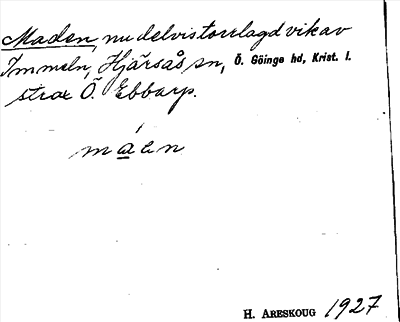 Maden, nu delvis torrlagd vik av
Immeln, Hjärsås sn, Ö. Göinge hd, Krist. l.
strax Ö. Ebbarp.
máen
H. ARESKOUG 1927